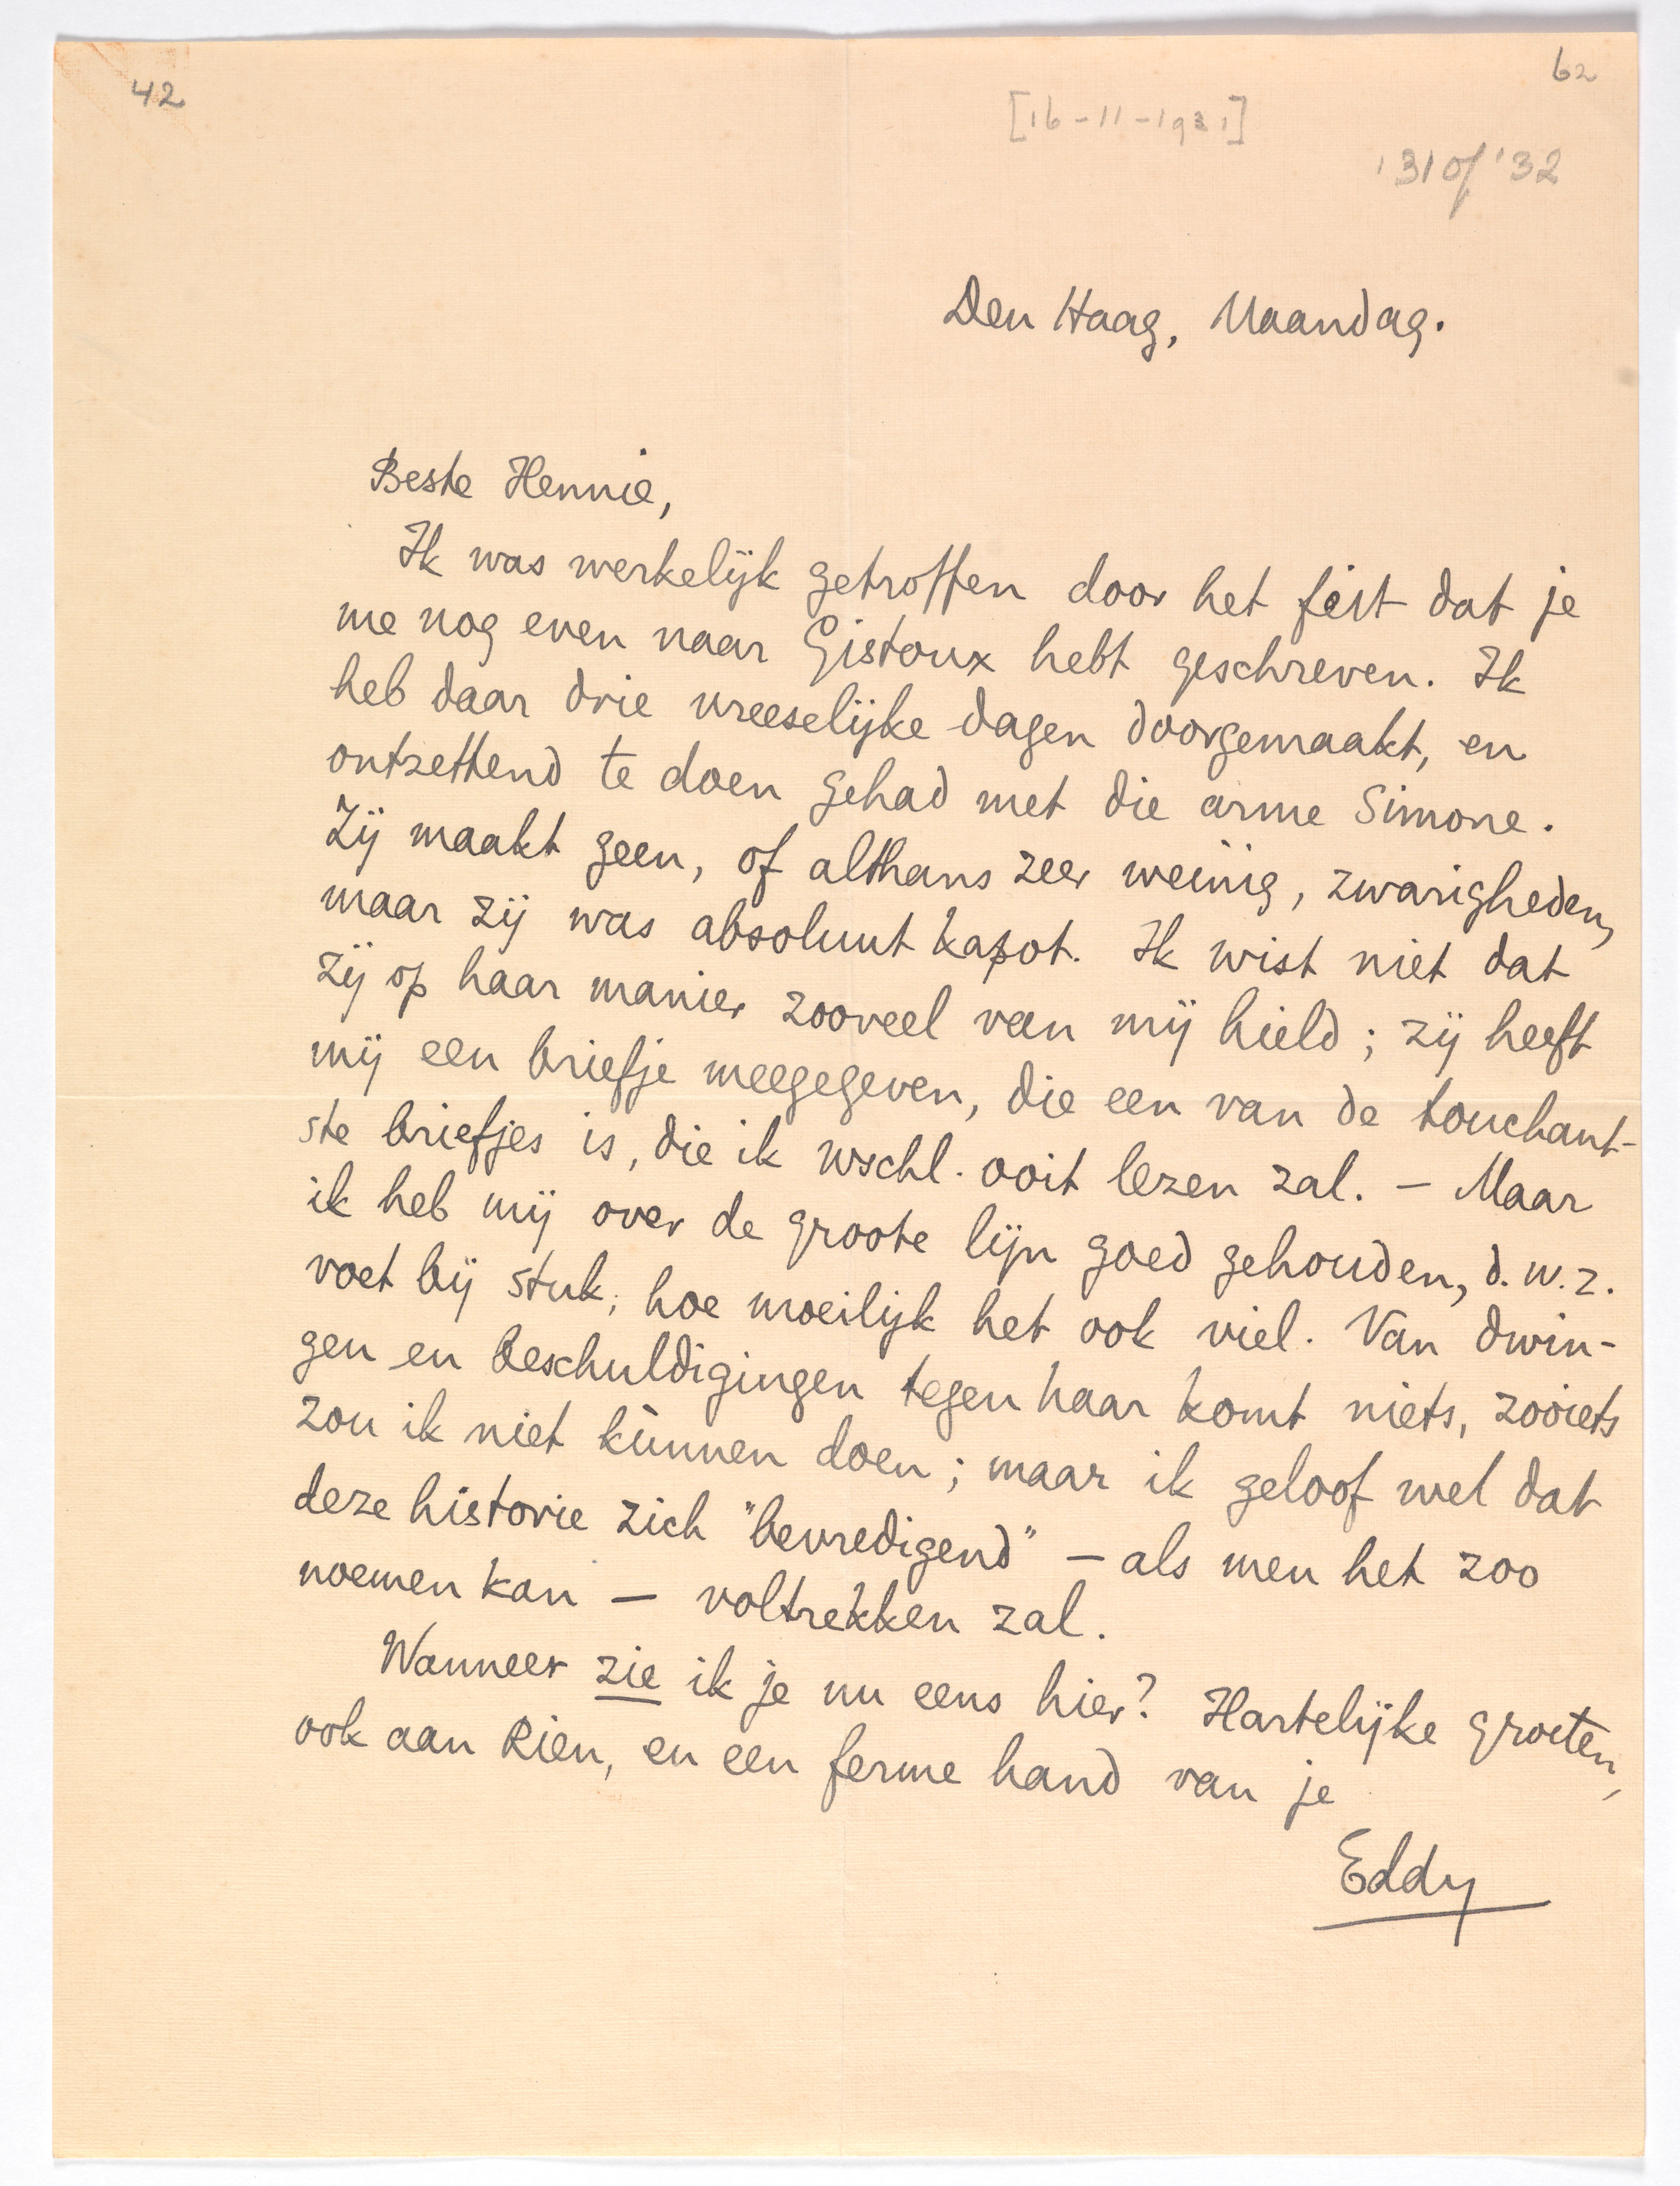 42
62
[16-11-1931]
'31 of '32
Den Haag, Maandag.
Beste Hennie,
Ik was werkelijk getroffen door het feit dat je
me nog even naar Gistoux hebt geschreven. Ik
heb daar drie vreeselijke dagen doorgemaakt, en
ontzettend te doen gehad met die arme Simone.
Zij maakt geen, of althans zeer weinig, zwarigheden,
maar zij was absoluut kapot. Ik wist niet dat
zij op haar manier zooveel van mij hield; zij heeft
mij een briefje meegegeven, die een van de touchant-
ste briefjes is, die ik wschl. ooit lezen zal. – Maar
ik heb mij over de groote lijn goed gehouden, d.w.z.
voet bij stuk, hoe moeilijk het ook viel. Van dwin-
gen en beschuldigingen tegen haar komt niets, zooiets
zou ik niet kùnnen doen; maar ik geloof wel dat
deze historie zich "bevredigend" – als men het zoo
noemen kan – voltrekken zal.
Wanneer zie ik je nu eens hier? Hartelijke groeten,
ook aan Rien, en een ferme hand van je
Eddy